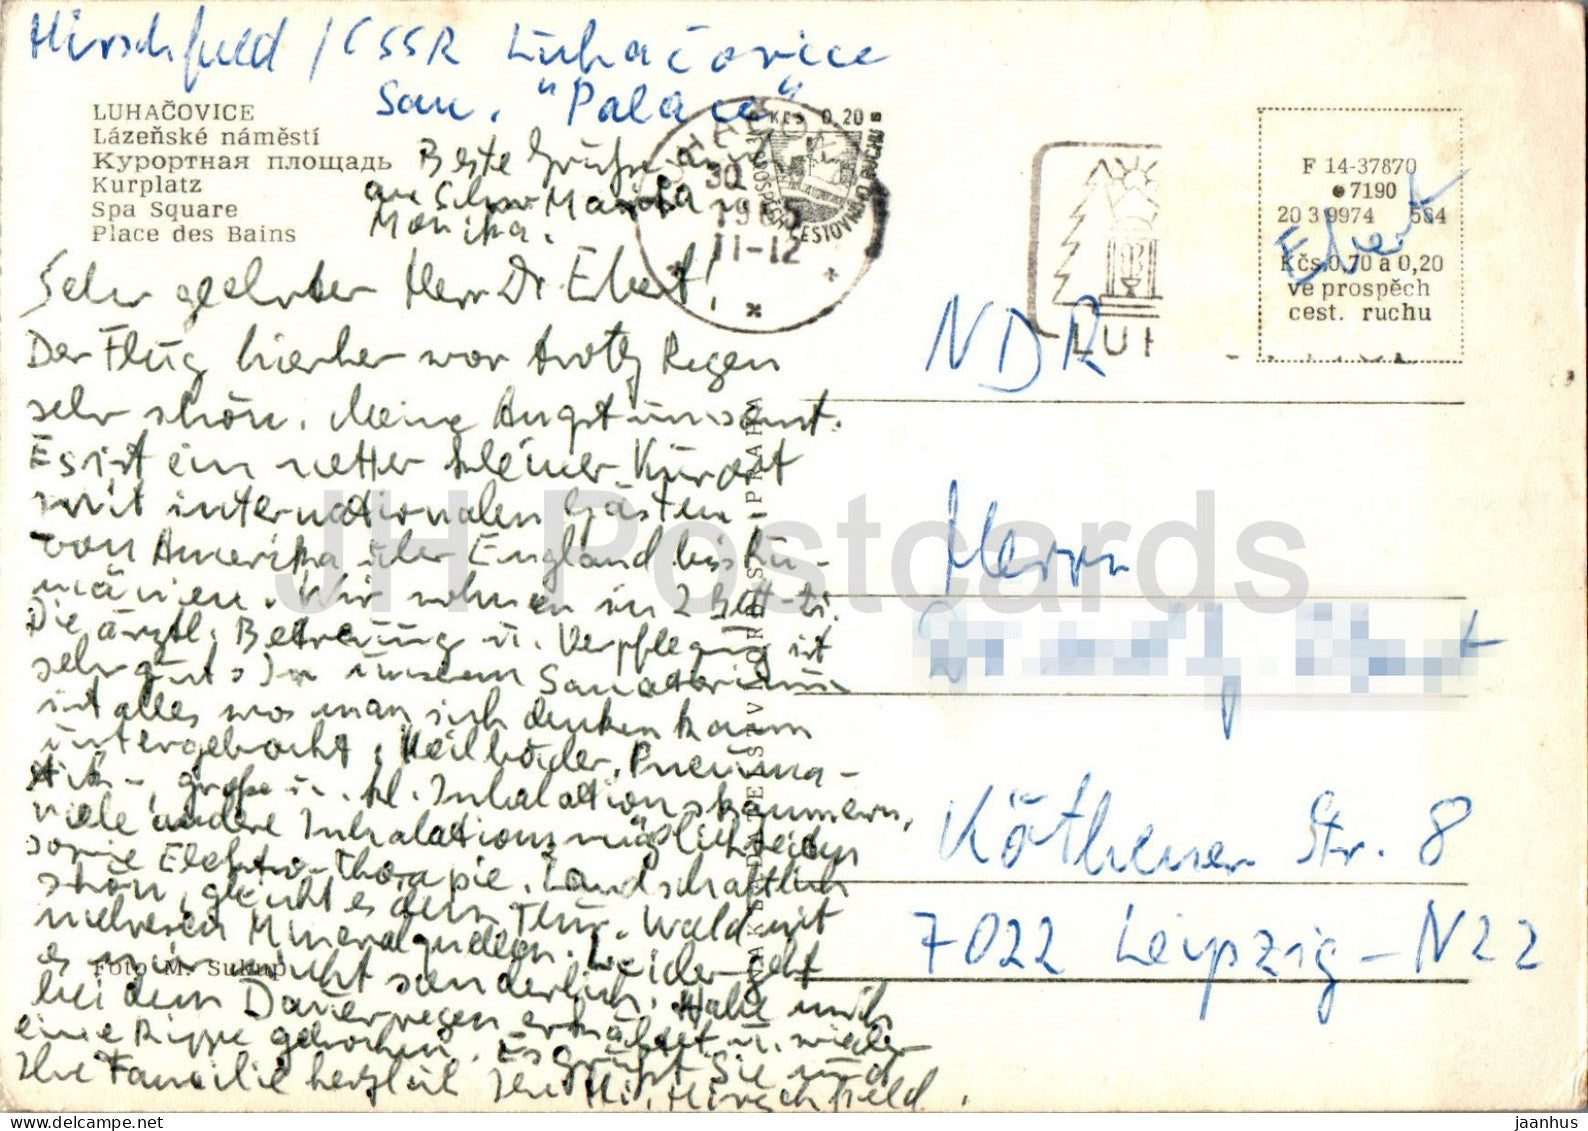 Hirschfeld / ČSSR Luhačovice
San. "Palace"
LUHAČOVICE
Lázeňské náměstí
Курортная площадь
Kurplatz
Spa Square
Place des Bains
Beste Grüße auch
an Schw. Manola u.
Monika.
KČS 0,20
30
11-12
LUH
F 14-37870
7190
20 3 9974 584
Kčs 0,70 a 0,20
ve prospěch
cest. ruchu
Ebert
Sehr geehrter Herr Dr. Ebert!
Der Flug hierher war trotz Regen
sehr schön. Meine Angst umsonst.
Es ist ein netter kleiner Kurort
mit internationalen Gästen -
von Amerika über England bis Ru-
mänien. Wir wohnen in 2 Bett-Zi.
Die ärztl. Betreuung u. Verpflegung ist
sehr gut. In unserem Sanatorium
ist alles was man sich denken kann
untergebracht, Heilbäder, Pneuma-
tik-, große u. kl. Inhalationskammern,
viele andere Inhalationsmöglichkeiten
sowie Elektro-Therapie. Landschaftlich
schön, gleicht es dem Thür. Wald mit
mehreren Mineralquellen. Leider geht
es mir nicht sonderlich. Habe mich
bei dem Dauerregen erkältet u. wieder
eine Rippe gebrochen. Es grüßt Sie und
Ihre Familie herzlich Ihre Hi. Hirschfeld.
Foto M. Sukup
PRAHA
NDR
Herrn
Köthener Str. 8
7022 Leipzig - N22
JH Postcards
jaanhus